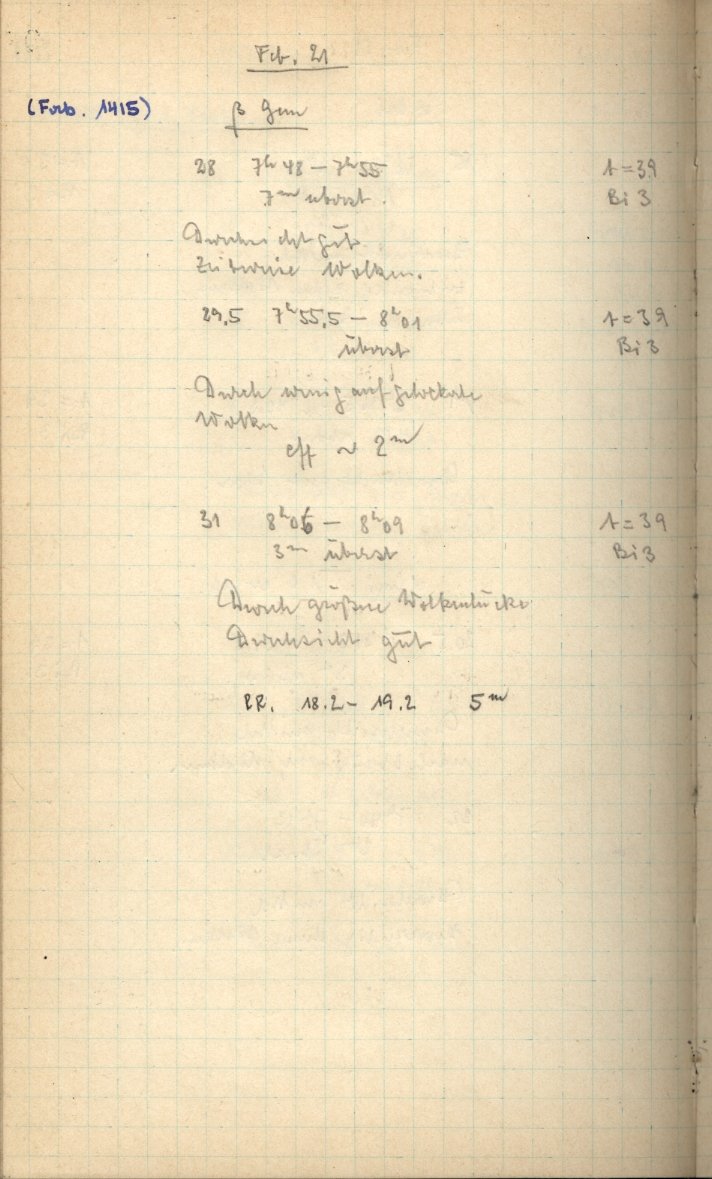 Feb. 21
(Forb. 1415)
β Gem
28 7h 48 – 7h 55 t = 39
7m überst. Bi 3
Durchsicht gut
Zeitweise Wolken.
29,5 7h 55,5 – 8h 01 t = 39
überst Bi 3
Durch wenig aufgelockerte
Wolken
eff ~ 2m
31 8h 06 – 8h 09 t = 39
3m überst Bi 3
Durch größere Wolkenlücke
Durchsicht gut
RR. 18.2 – 19.2 5m